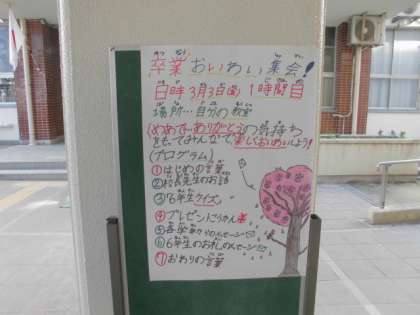 卒業おいわい集会!
日時 3月3日(金) 1時間目
場所…自分の教室
「おめでとう、ありがとう」の気持ち
をもってみんなで楽しくおいわいしよう!
(プログラム)
①はじめの言葉
②校長先生のお話
③6年生クイズ
④プレゼントこうかん
⑤各学年からのメッセージ
⑥6年生のお礼のメッセージ
⑦おわりの言葉